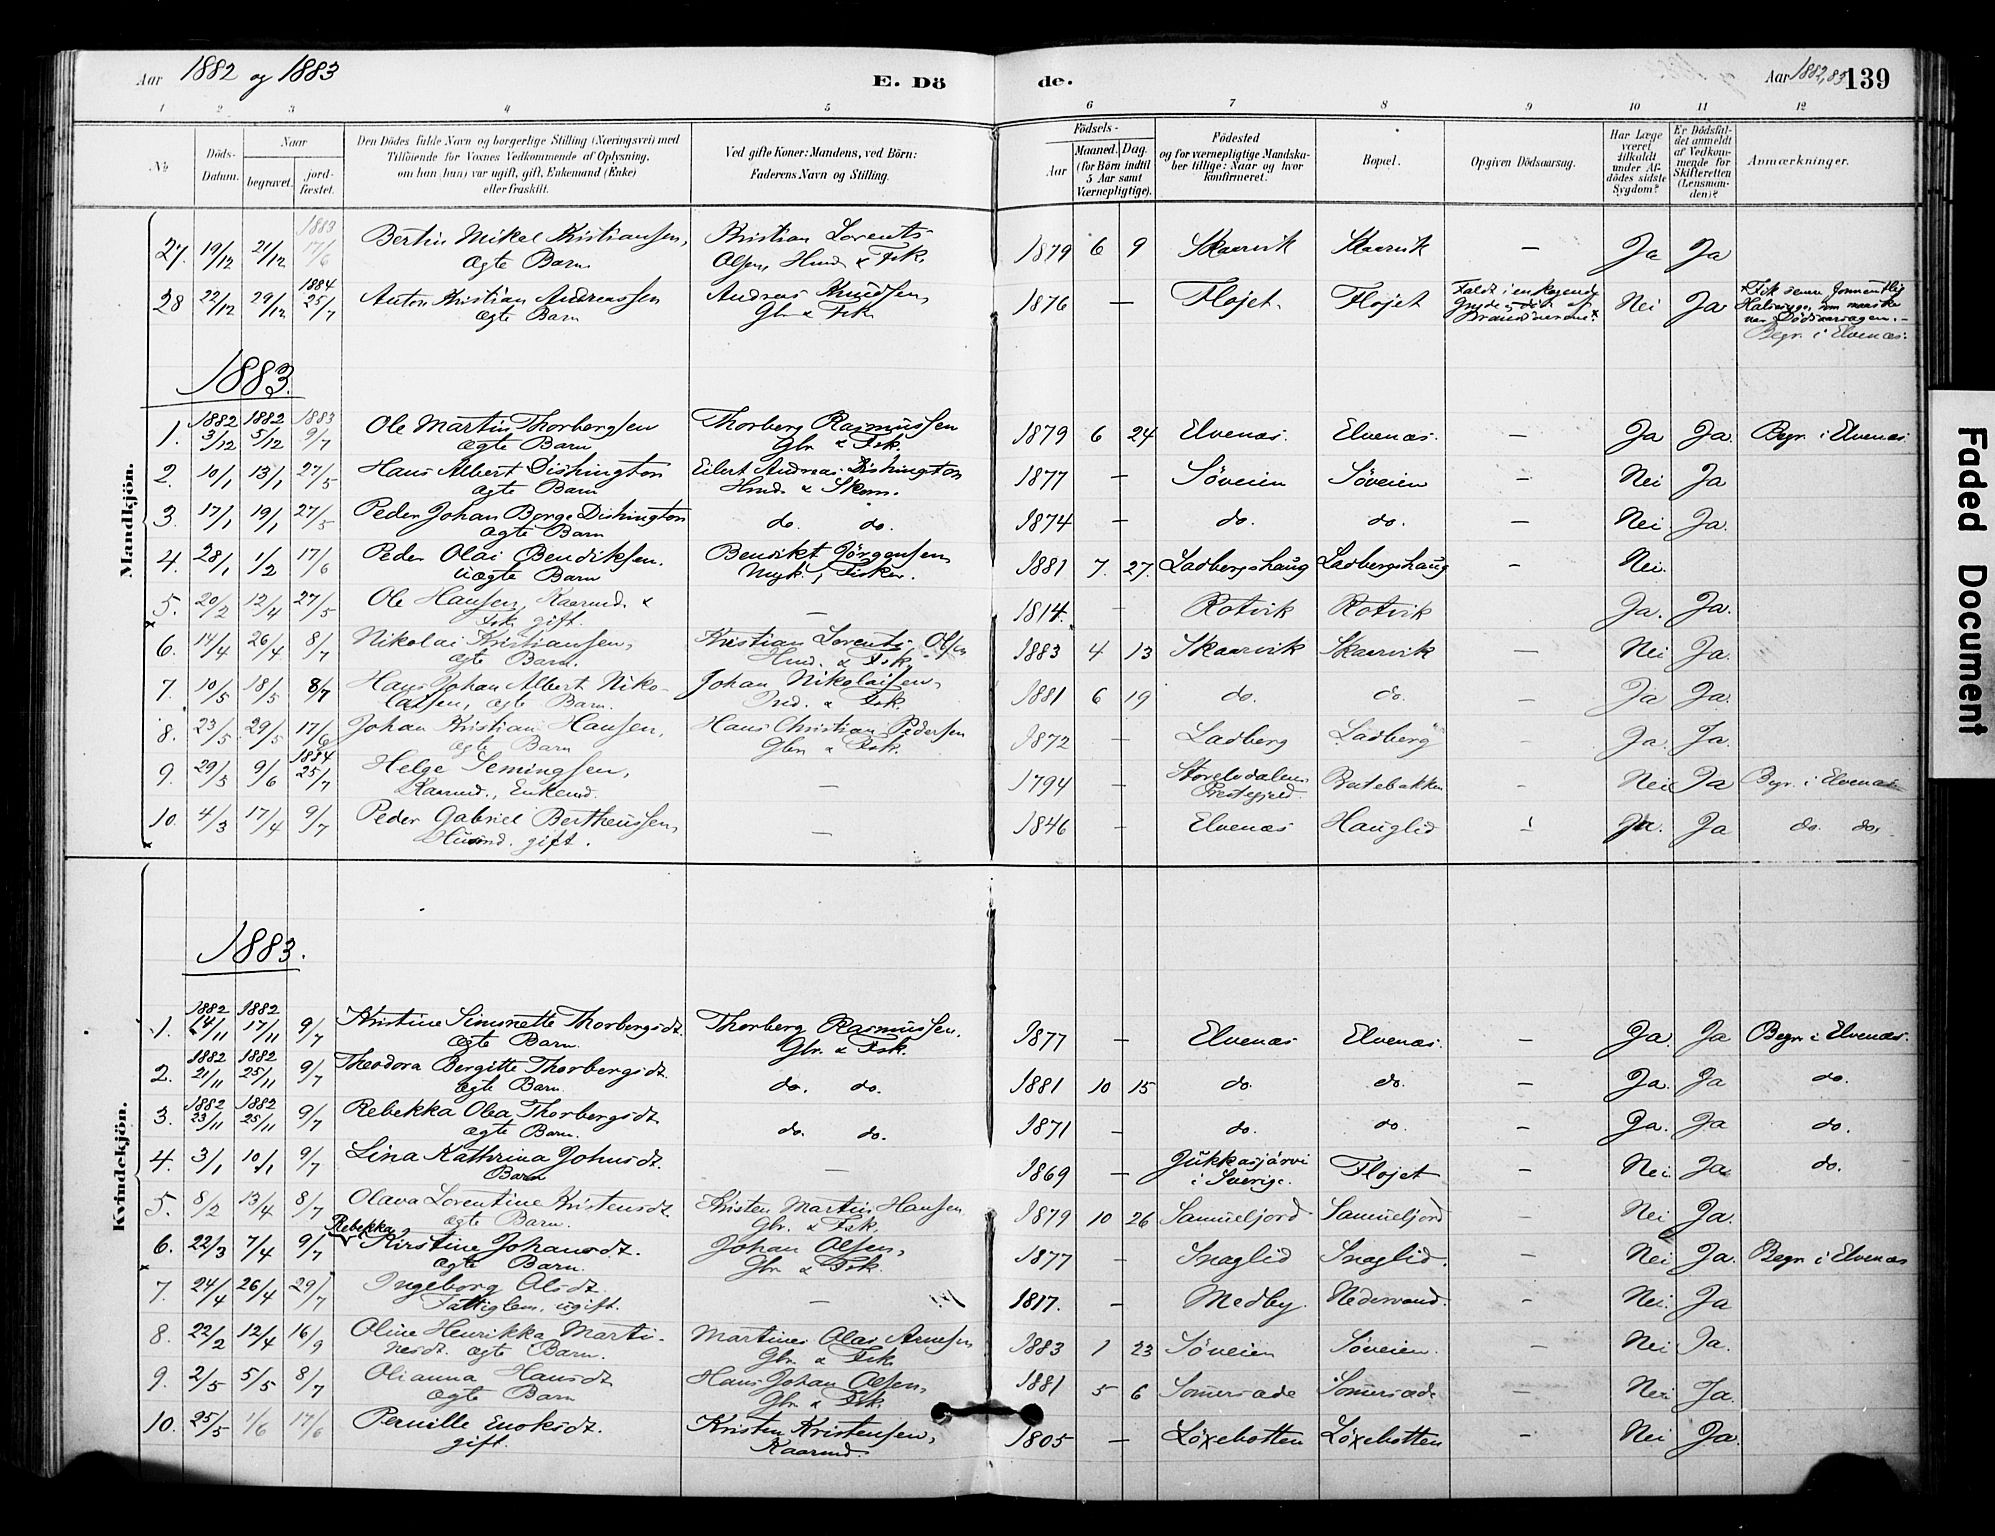 Aar 1882 og 1883
E. Dö
de.
Aar 1882, 83
139
1 2 3 4 5 6 7 8 9 10 11 12
№
Döds-Datum.
Naar
begravet.
jord-fæstet.
Den Dödes fulde Navn og borgerlige Stilling (Næringsvei) med
Tilföiende for Voxnes Vedkommende af Oplysning,
om han (hun) var ugift, gift, Enkemand (Enke)
eller fraskilt.
Ved gifte Koner: Mandens, ved Börn:
Faderens Navn og Stilling.
Födsels-
Aar
Maaned.
Dag.
(for Börn indtil
5 Aar samt
Værnepligtige).
Födested
og for værnepligtige Mandska-
ber tillige: Naar og hvor
konfirmeret.
Bopæl.
Opgiven Dödsaarsag.
Har Læge
været
tilkaldt
under Af-
dödes sidste
Sygdom?
Er Dödsfal-
det anmeldt
af Vedkom-
mende for
Skifteretten
(Lensman-
den)?
Anmærkninger.
Mandkjön.
27. 19/12 21/12 1883 17/6 Bertin Mikel Kristiansen, ægte Barn Kristian Lorents Olsen, Husm. & Fsk. 1879 6 9 Skaarvik Skaarvik — Ja Ja
28 22/12 29/12 1884 25/7 Anton Kristian Andreassen ægte Barn Andreas Knudsen, Gbr & Fsk. 1876 — Fløjet. Fløjet Faldt i en kogende Gryde, døde af Brandsaarene.* Nei Ja *Fik senere Halssyge, som maaske var Dødsaarsagen. — Begr. i Elvenæs.
1883.
1. 1882 3/12 1882 5/12 1883 9/7 Ole Martin Thorbergsen ægte Barn Thorberg Rasmussen Gbr & Fsk. 1879 6 24 Elvenæs. Elvenæs. — Ja Ja. Begr. i Elvenæs.
2. 10/1 13/1 27/5 Hans Albert Dishington ægte Barn Eilert Andreas Dishington Husm. & Skom. 1877 — Søveien Søveien — Nei Ja
3. 17/1 19/1 27/5 Peder Johan Borge Dishington ægte Barn do. do. 1874 — do. do. — Nei. Ja.
4. 28/1 1/2 17/6 Peder Olai Bendiksen. uægte Barn Bendikt Jörgensen Ungk., Fisker. 1881 7. 27. Ladbergshaug Ladbergshaug — Nei.
5. 20/2 12/4 27/5 Ole Hansen, Kaarmd. & Fsk. gift. — 1814. — Rotvik Rotvik Ja. Ja.
6. 14/4 26/4 8/7 Nikolai Kristiansen, ægte Barn. Kristian Lorents Olsen Husm. & Fsk. 1883 4 13 Skaarvik Skaarvik — Nei Ja.
7. 10/5 18/5 8/7 Hans Johan Albert Niko-laisen, ægte Barn. Johan Nikolaisen, Ind. & Fsk. 1881 6 19 do. do. — Ja Ja.
8. 23/5 29/5 17/6 Johan Kristian Hansen, ægte Barn Hans Christian Pedersen Gbr. & Fsk. 1872 — Ladberg Ladberg — Ja. Ja.
9. 29/5 9/6 1884 25/7 Helge Semingsen, Kaarmd., Enkemd. — 1794 — Storelvdalens Prestegjeld. Bratebakken — Nei Ja Begr. i Elvenæs
10. 4/3 17/4 9/7 Peder Gabriel Bertheussen, Husmd. gift. — 1846 — Elvenæs Hauglid — Ja. Ja do. do.
Kvindekjön.
1883.
1. 1882 14/11 1882 17/11 9/7 Kristine Simonette Thorbergsdt. ægte Barn. Thorberg Rasmussen. Gbr. & Fsk. 1877 — Elvenæs Elvenæs. — Ja Ja Begr. i Elvenæs.
2. 1882 21/11 1882 25/11 9/7 Theodora Bergitte Thorbergsdt. ægte Barn. do. do. 1881 10 15 do. do. — Ja. Ja do.
3. 1882 23/11 1882 25/11 9/7 Rebekka Olea Thorbergsdt. ægte Barn. do. do. 1871 — do. do. — Ja. Ja do.
4. 3/1 10/1 9/7 Lina Kathrina Johnsdt. Barn — 1869 — Jukkasjärvi i Sverige. Fløjet — Nei. Ja do.
5. 8/2 13/4 8/7 Olava Lorentine Kristensdt. ægte Barn. Kristen Martin Hansen Gbr. & Fsk. 1879 10 26 Samueljord Samueljord — Nei Ja.
6. 22/3 7/4 9/7 Rebekka Kirstine Johansdt. ægte Barn. Johan Olsen, Gbr & Fsk. 1877 — Snaglid Snaglid. — Nei Ja. Begr. i Elvenæs
7. 24/4 26/4 29/7 Ingeborg Olsdt. Fattiglem, ugift. — 1817. — Medby. Nedervand. — Nei. Ja
8. 22/2 12/4 16/9 Oline Henrikka Marti-nesdt. ægte Barn. Martines Olai Arnesen Gbr. & Fsk. 1883 1 23 Søveien Søveien. — Nei Ja.
9. 2/5 5/5 8/7 Olianna Hansdt. ægte Barn Hans Johan Olsen, Gbr. & Fsk. 1881 5 6 Sommersæde Sommersæde — Nei Ja.
10. 25/5 1/6 17/6 Pernille Enoksdt. gift. Kristen Kristensen, Kaarmd. 1805 — Løxebotten Løxebotten — Nei Ja.
Faded Document